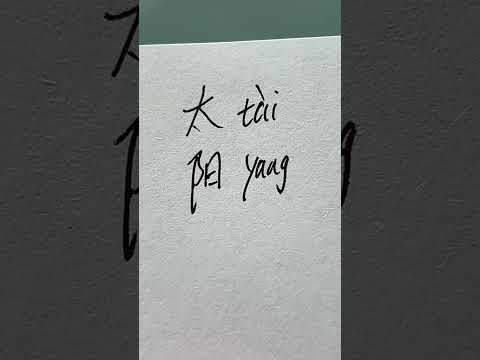 太 tài
阳 yang